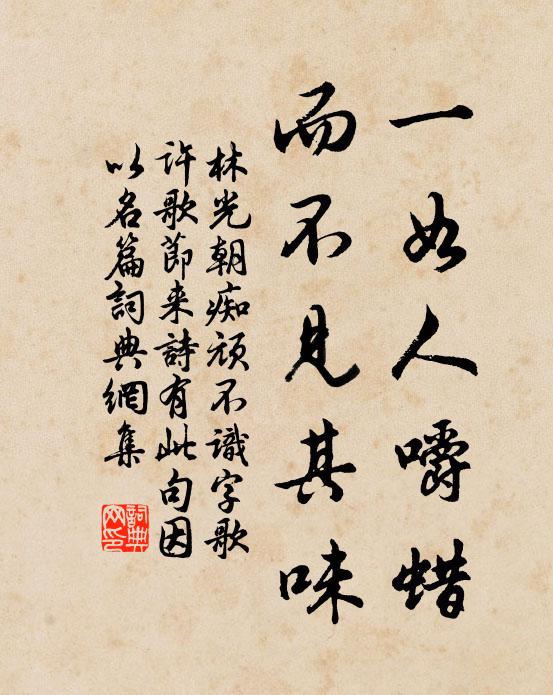 一如人嚼蜡
而不见其味
林光朝痴顽不識字歌
许歌節来詩有此句因
以名篇詞典網集
詞典
网印